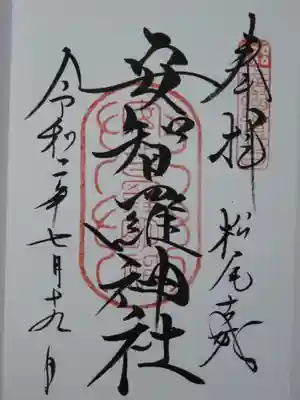 奉拝
松尾城
安智羅神社
令和二年七月十九日